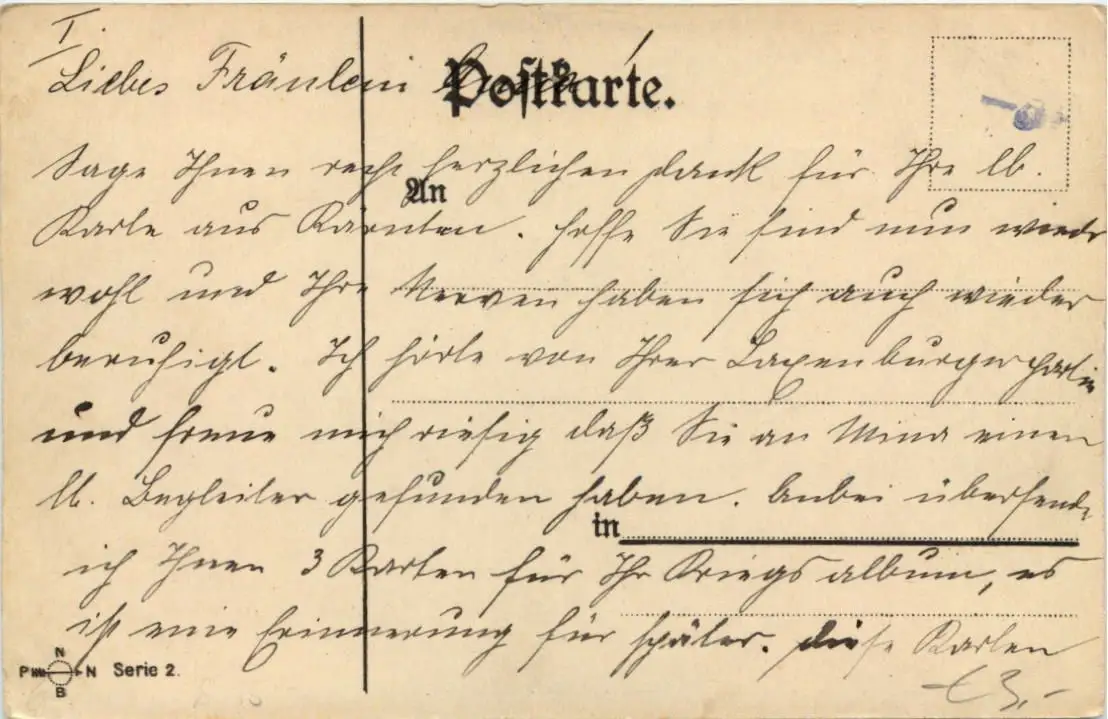 I.
Liebes Fräulein
Postkarte.
Sage Ihnen recht herzlichen Dank für Ihre lb.
An
Karte aus Kärnten. Hoffe Sie sind nun wieder
wohl und Ihre Nerven haben sich auch wieder
beruhigt. Ich hörte von Ihrer Laxenburger Partie
und freue mich riesig daß Sie an Mina einen
lb. Begleiter gefunden haben. Anbei übersende
in
ich Ihnen 3 Karten für Ihr Kriegsalbum, es
ist eine Erinnerung für später. Diese Karten
N
P N Serie 2.
B
€ 3,-